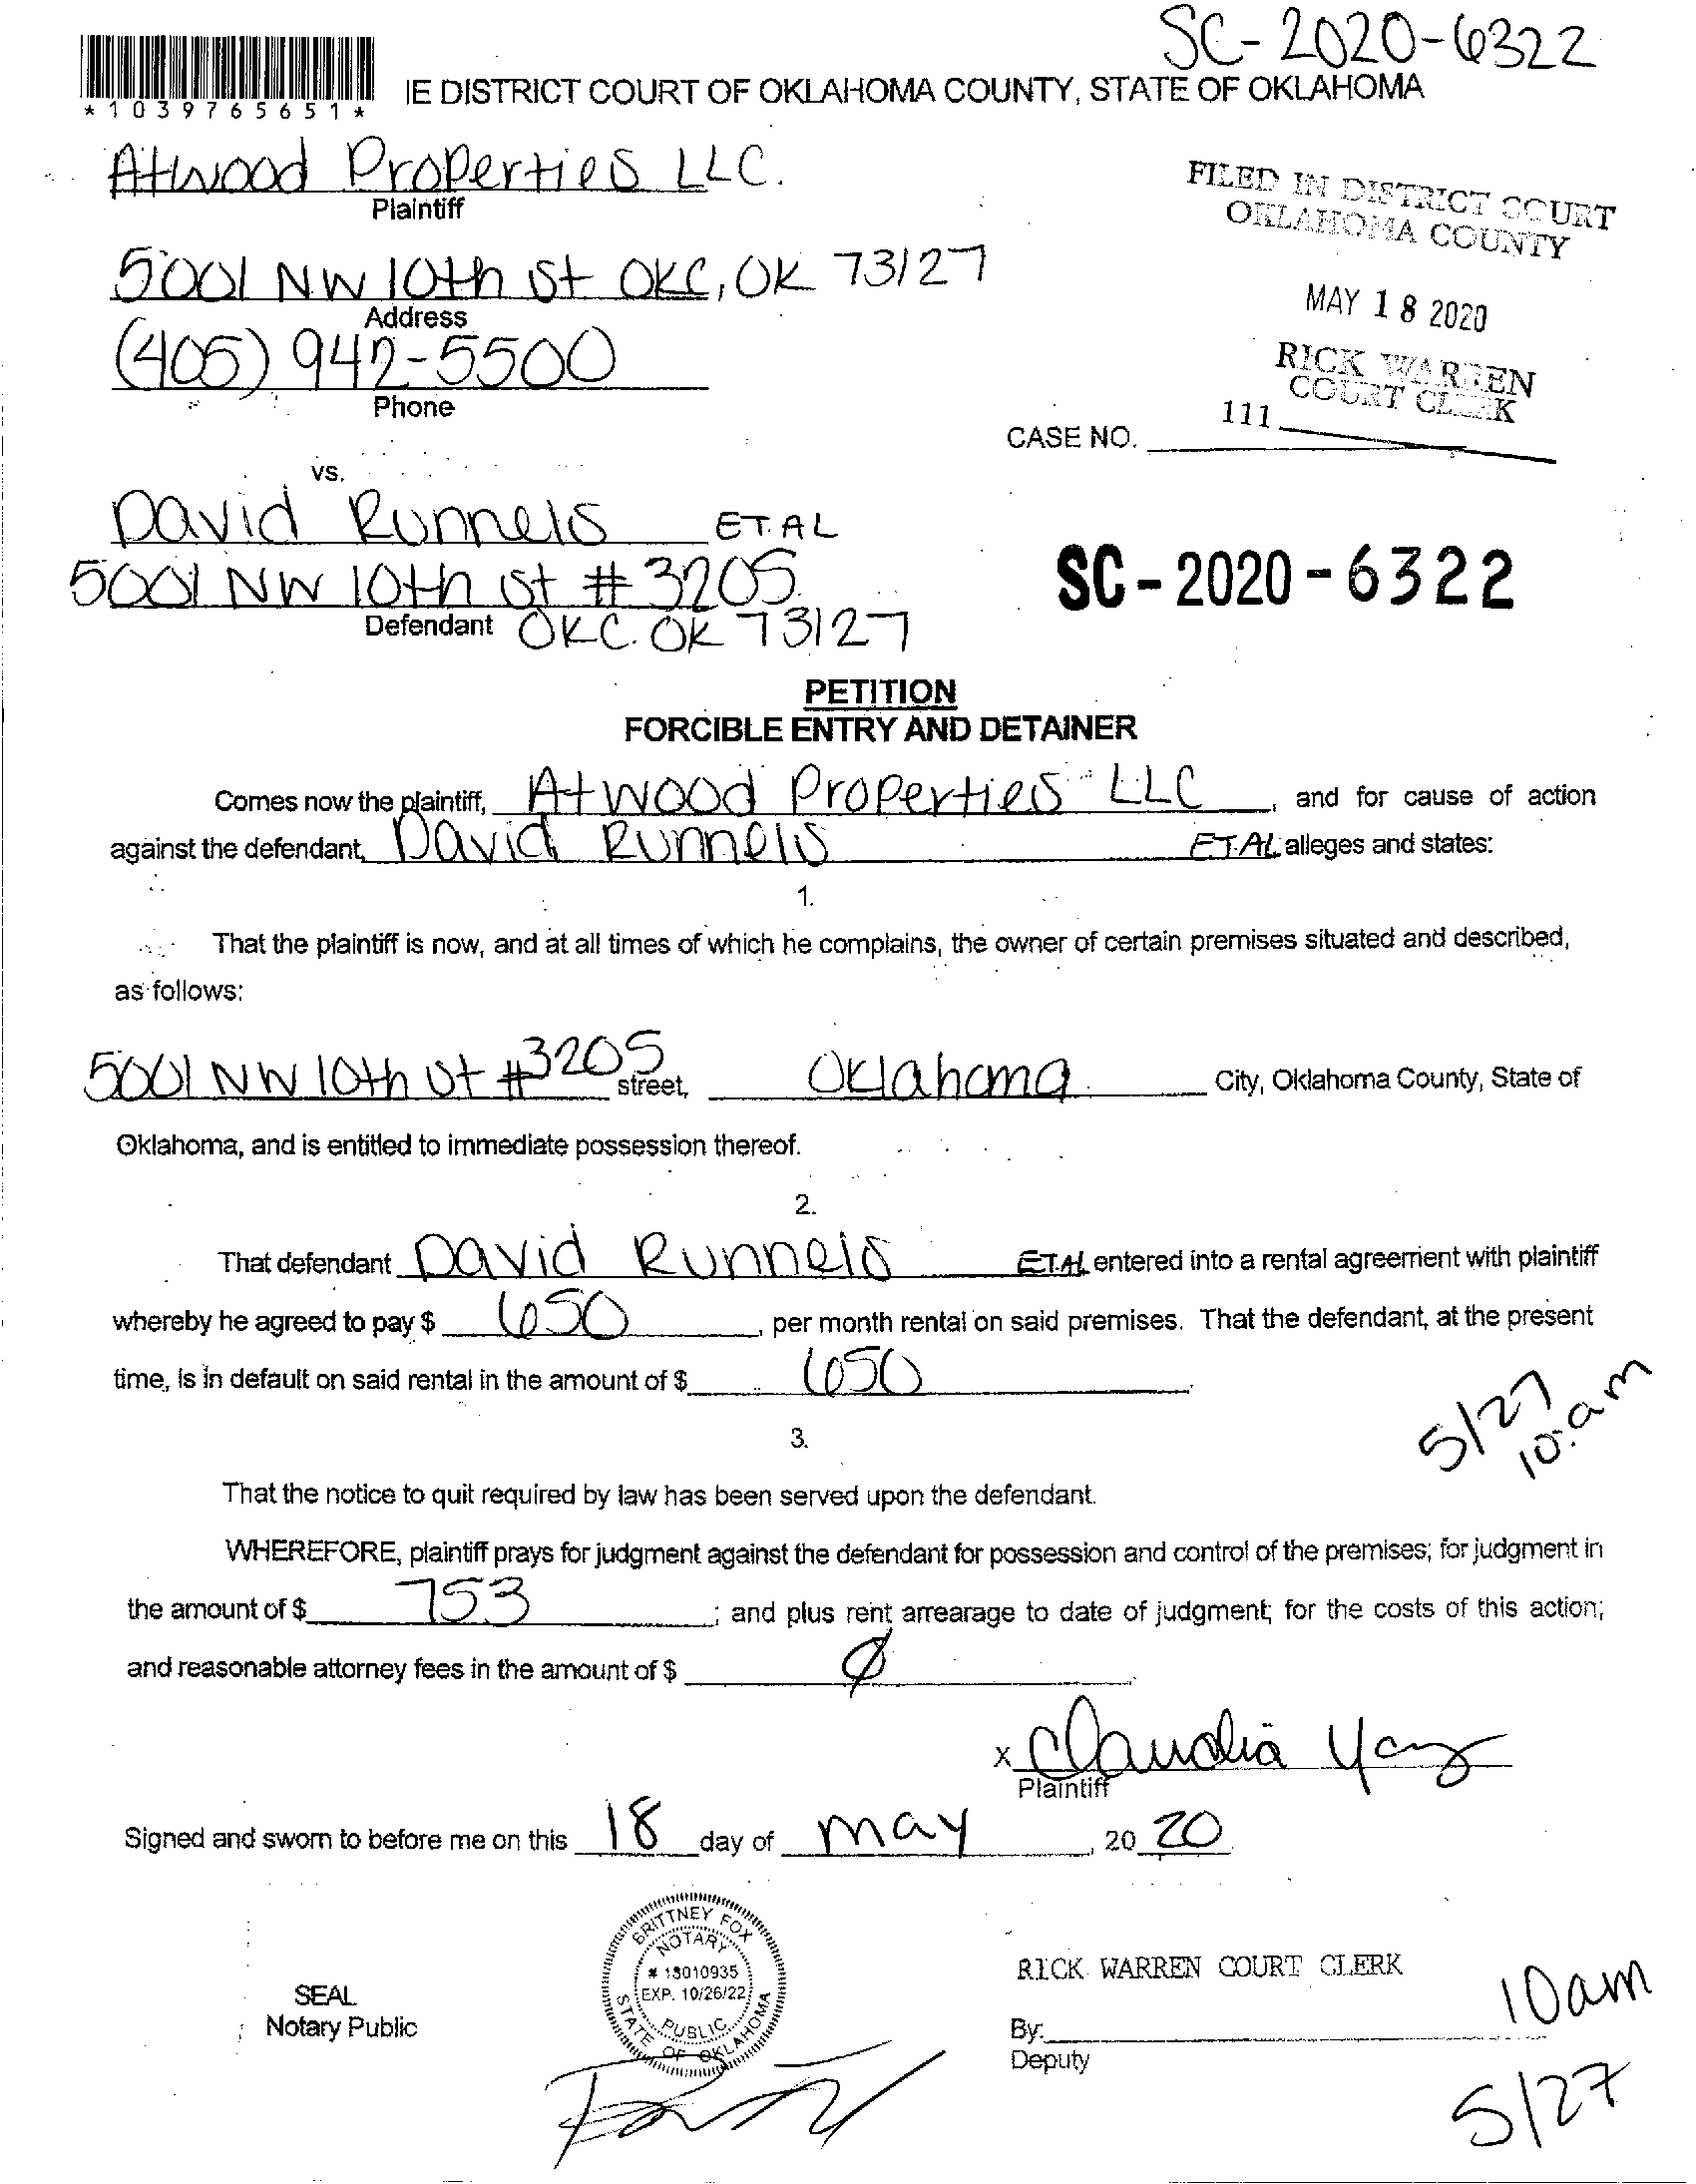 SC-2020-6322
*1039765651*
IE DISTRICT COURT OF OKLAHOMA COUNTY, STATE OF OKLAHOMA
Atwood Properties LLC.
Plaintiff
FILED IN DISTRICT COURT
OKLAHOMA COUNTY
5001 NW 10th St OKC, OK 73127
Address
MAY 18 2020
(405) 942-5500
Phone
RICK WARREN
COURT CLERK
111
CASE NO.
vs.
David Runnels ET. AL
5001 NW 10th St # 3205
Defendant OKC. OK 73127
SC-2020-6322
PETITION
FORCIBLE ENTRY AND DETAINER
Comes now the plaintiff, Atwood Properties LLC, and for cause of action
against the defendant, David Runnels ET. AL alleges and states:
1.
That the plaintiff is now, and at all times of which he complains, the owner of certain premises situated and described,
as follows:
5001 NW 10th St #3205 street, Oklahoma City, Oklahoma County, State of
Oklahoma, and is entitled to immediate possession thereof.
2.
That defendant David Runnels ET. AL entered into a rental agreement with plaintiff
whereby he agreed to pay $ 650, per month rental on said premises. That the defendant, at the present
time, is in default on said rental in the amount of $ 650
5/27
10:am
3.
That the notice to quit required by law has been served upon the defendant.
WHEREFORE, plaintiff prays for judgment against the defendant for possession and control of the premises; for judgment in
the amount of $ 753; and plus rent arrearage to date of judgment; for the costs of this action;
and reasonable attorney fees in the amount of $ ∅
x Claudia
Plaintiff
Signed and sworn to before me on this 18 day of may, 20 20
BRITTNEY FOX
NOTARY
# 18010935
EXP. 10/26/22
PUBLIC
STATE OF OKLAHOMA
SEAL
Notary Public
RICK WARREN COURT CLERK
10am
By:
Deputy
5/27